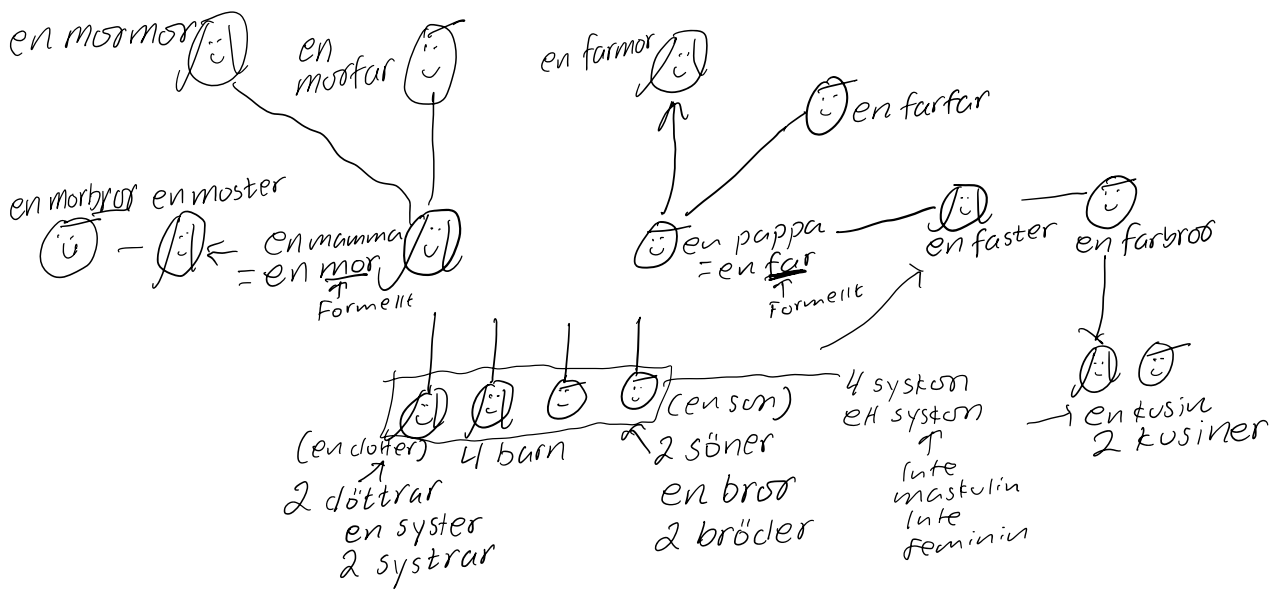 en mormor
en
morfar
en farmor
en farfar
en morbror
en moster
en mamma
= en mor
Formellt
en pappa
= en far
Formellt
en faster
en farbror
(en dotter)
2 döttrar
en syster
2 systrar
4 barn
(en son)
2 söner
en bror
2 bröder
4 syskon
ett syskon
Inte
maskulin
Inte
feminin
en kusin
2 kusiner